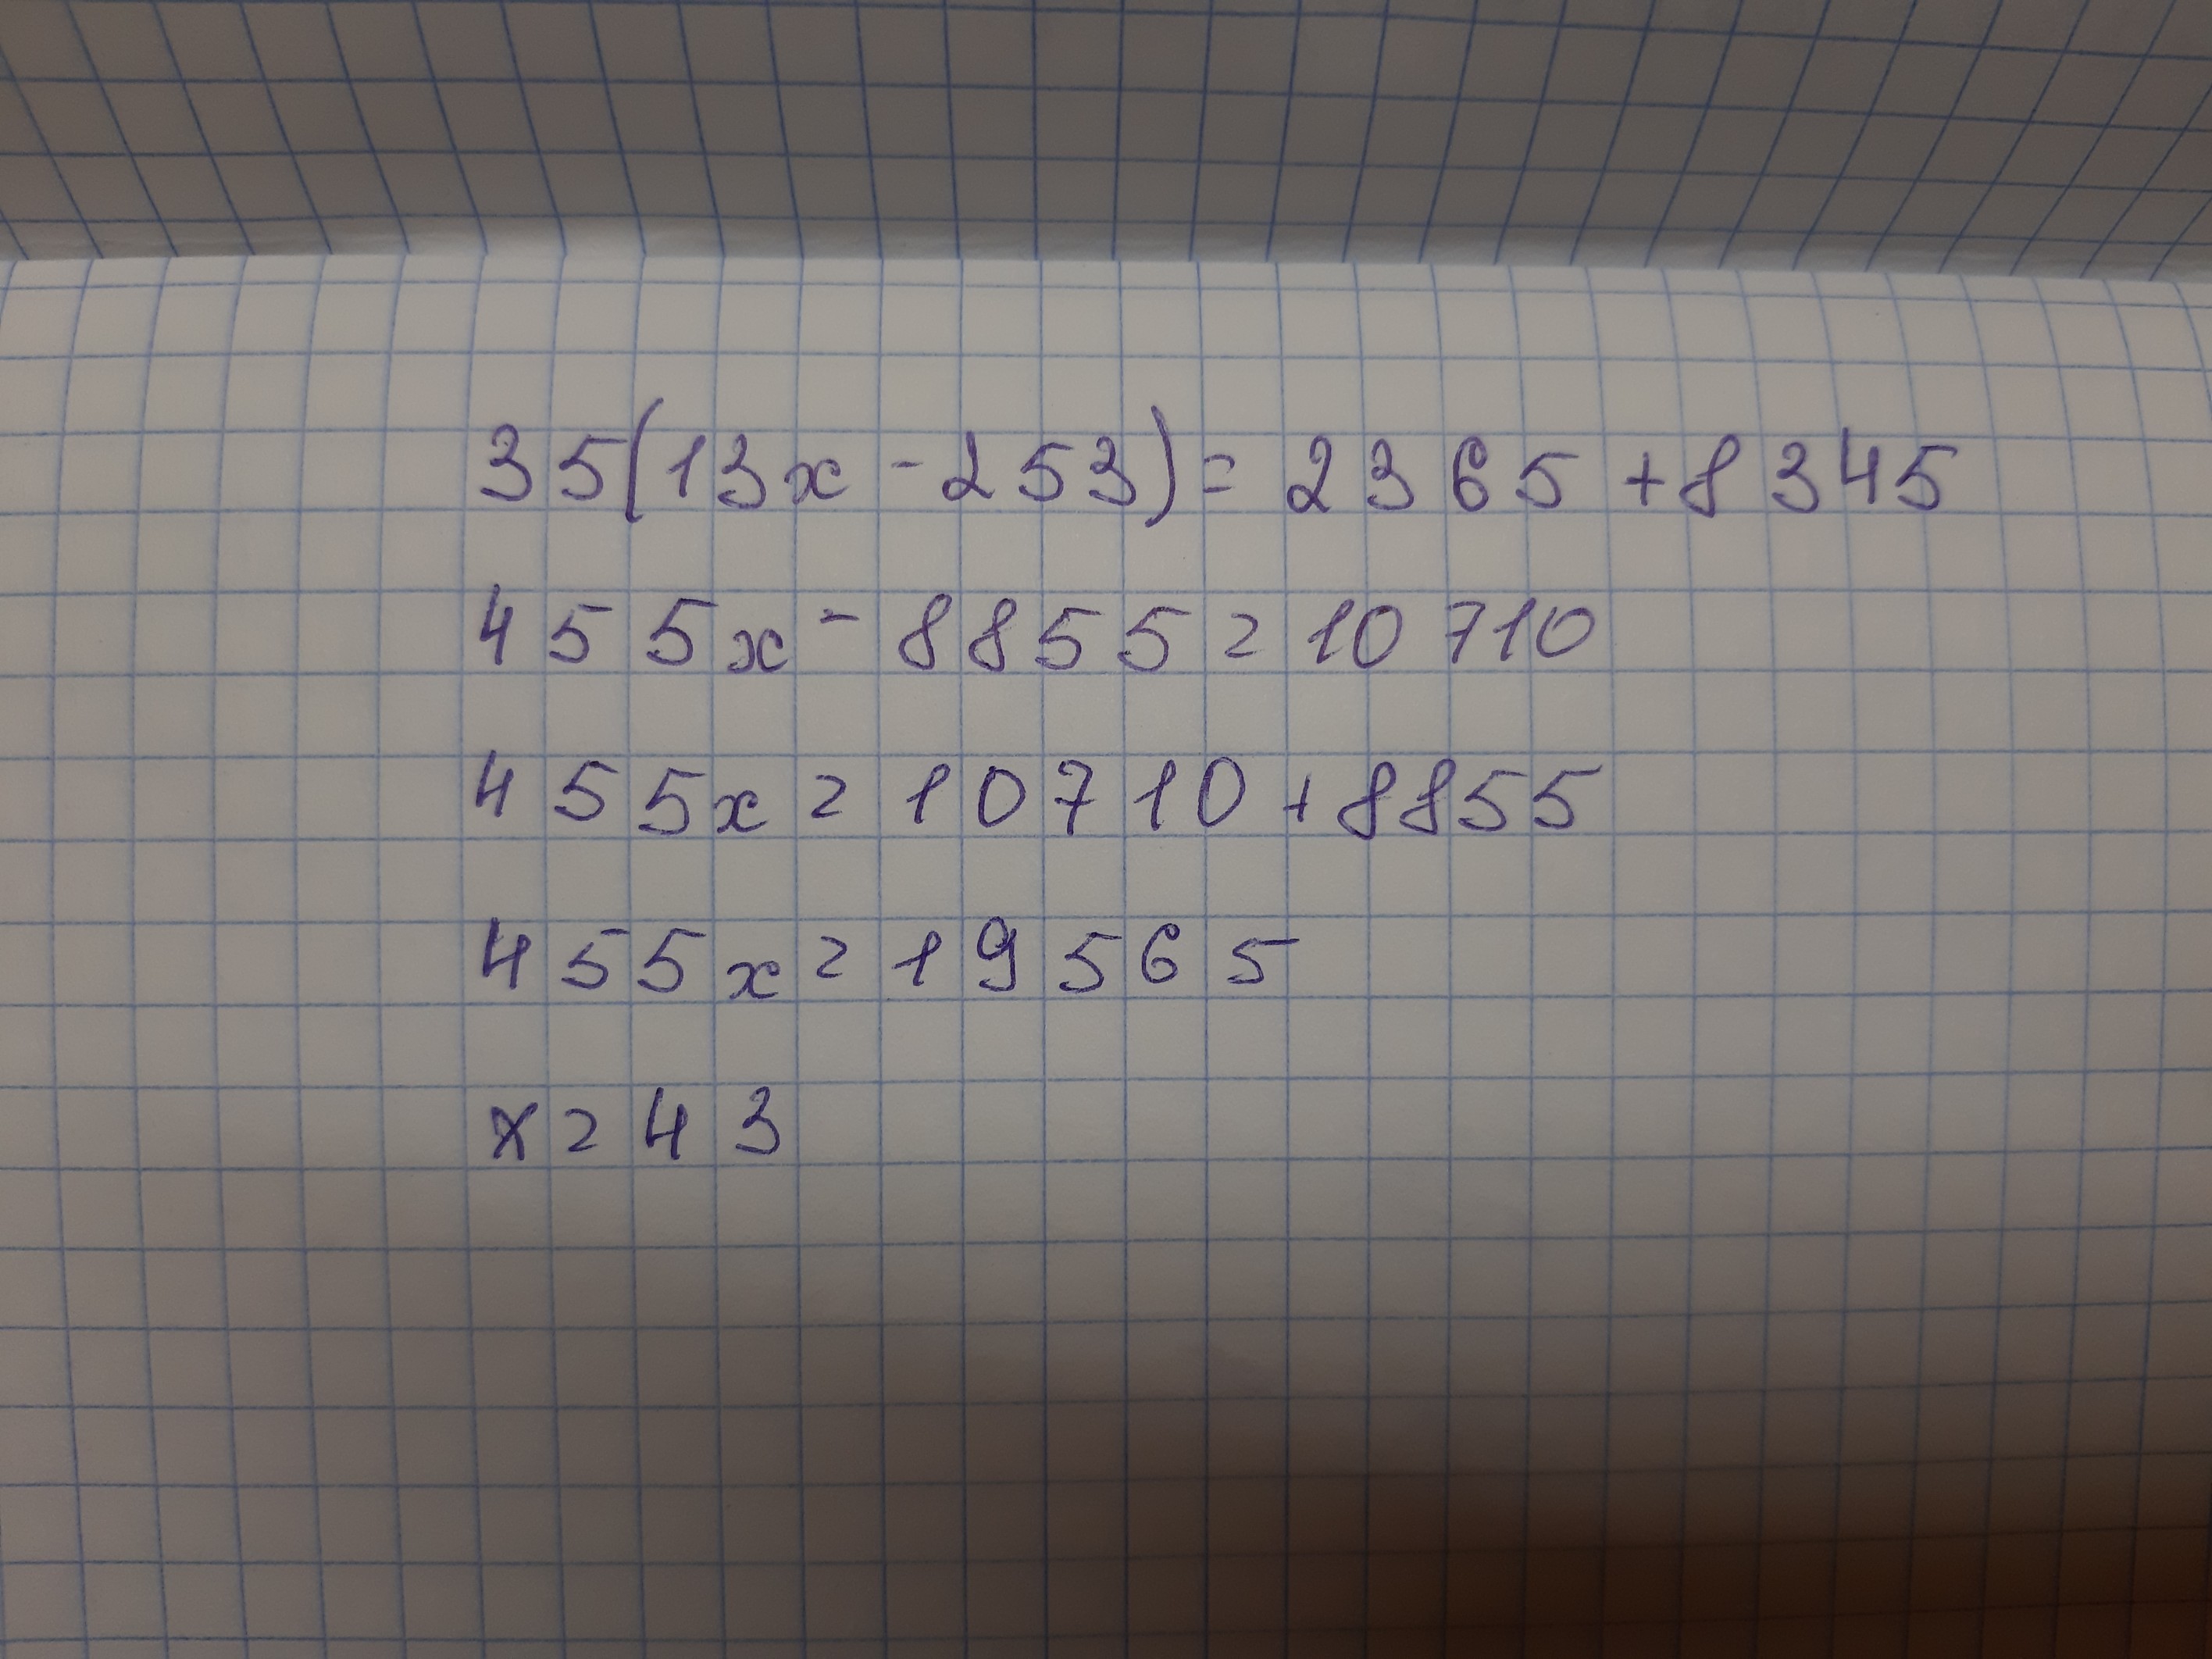 35(13x - 253) = 2365 + 8345
455x - 8855 = 10710
455x = 10710 + 8855
455x = 19565
x = 43